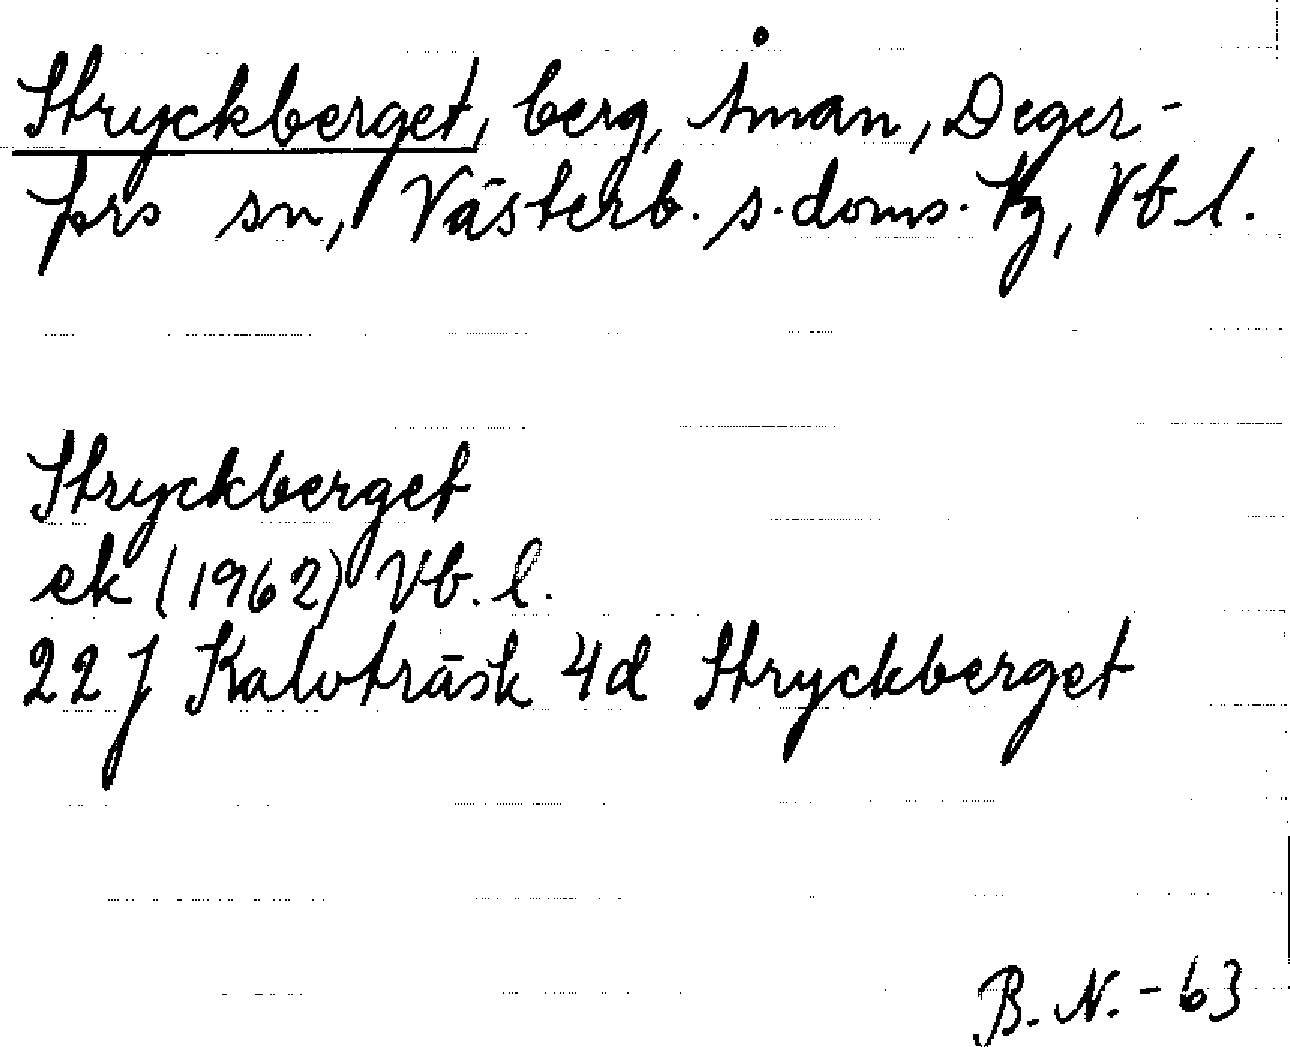 Stryckberget, berg, Åman, Deger-
fors sn, Västerb. s. doms. tg, Vb. l.
Stryckberget
ek (1962) Vb. l.
22 J Kalvträsk 4d Stryckberget
B. N. - 63